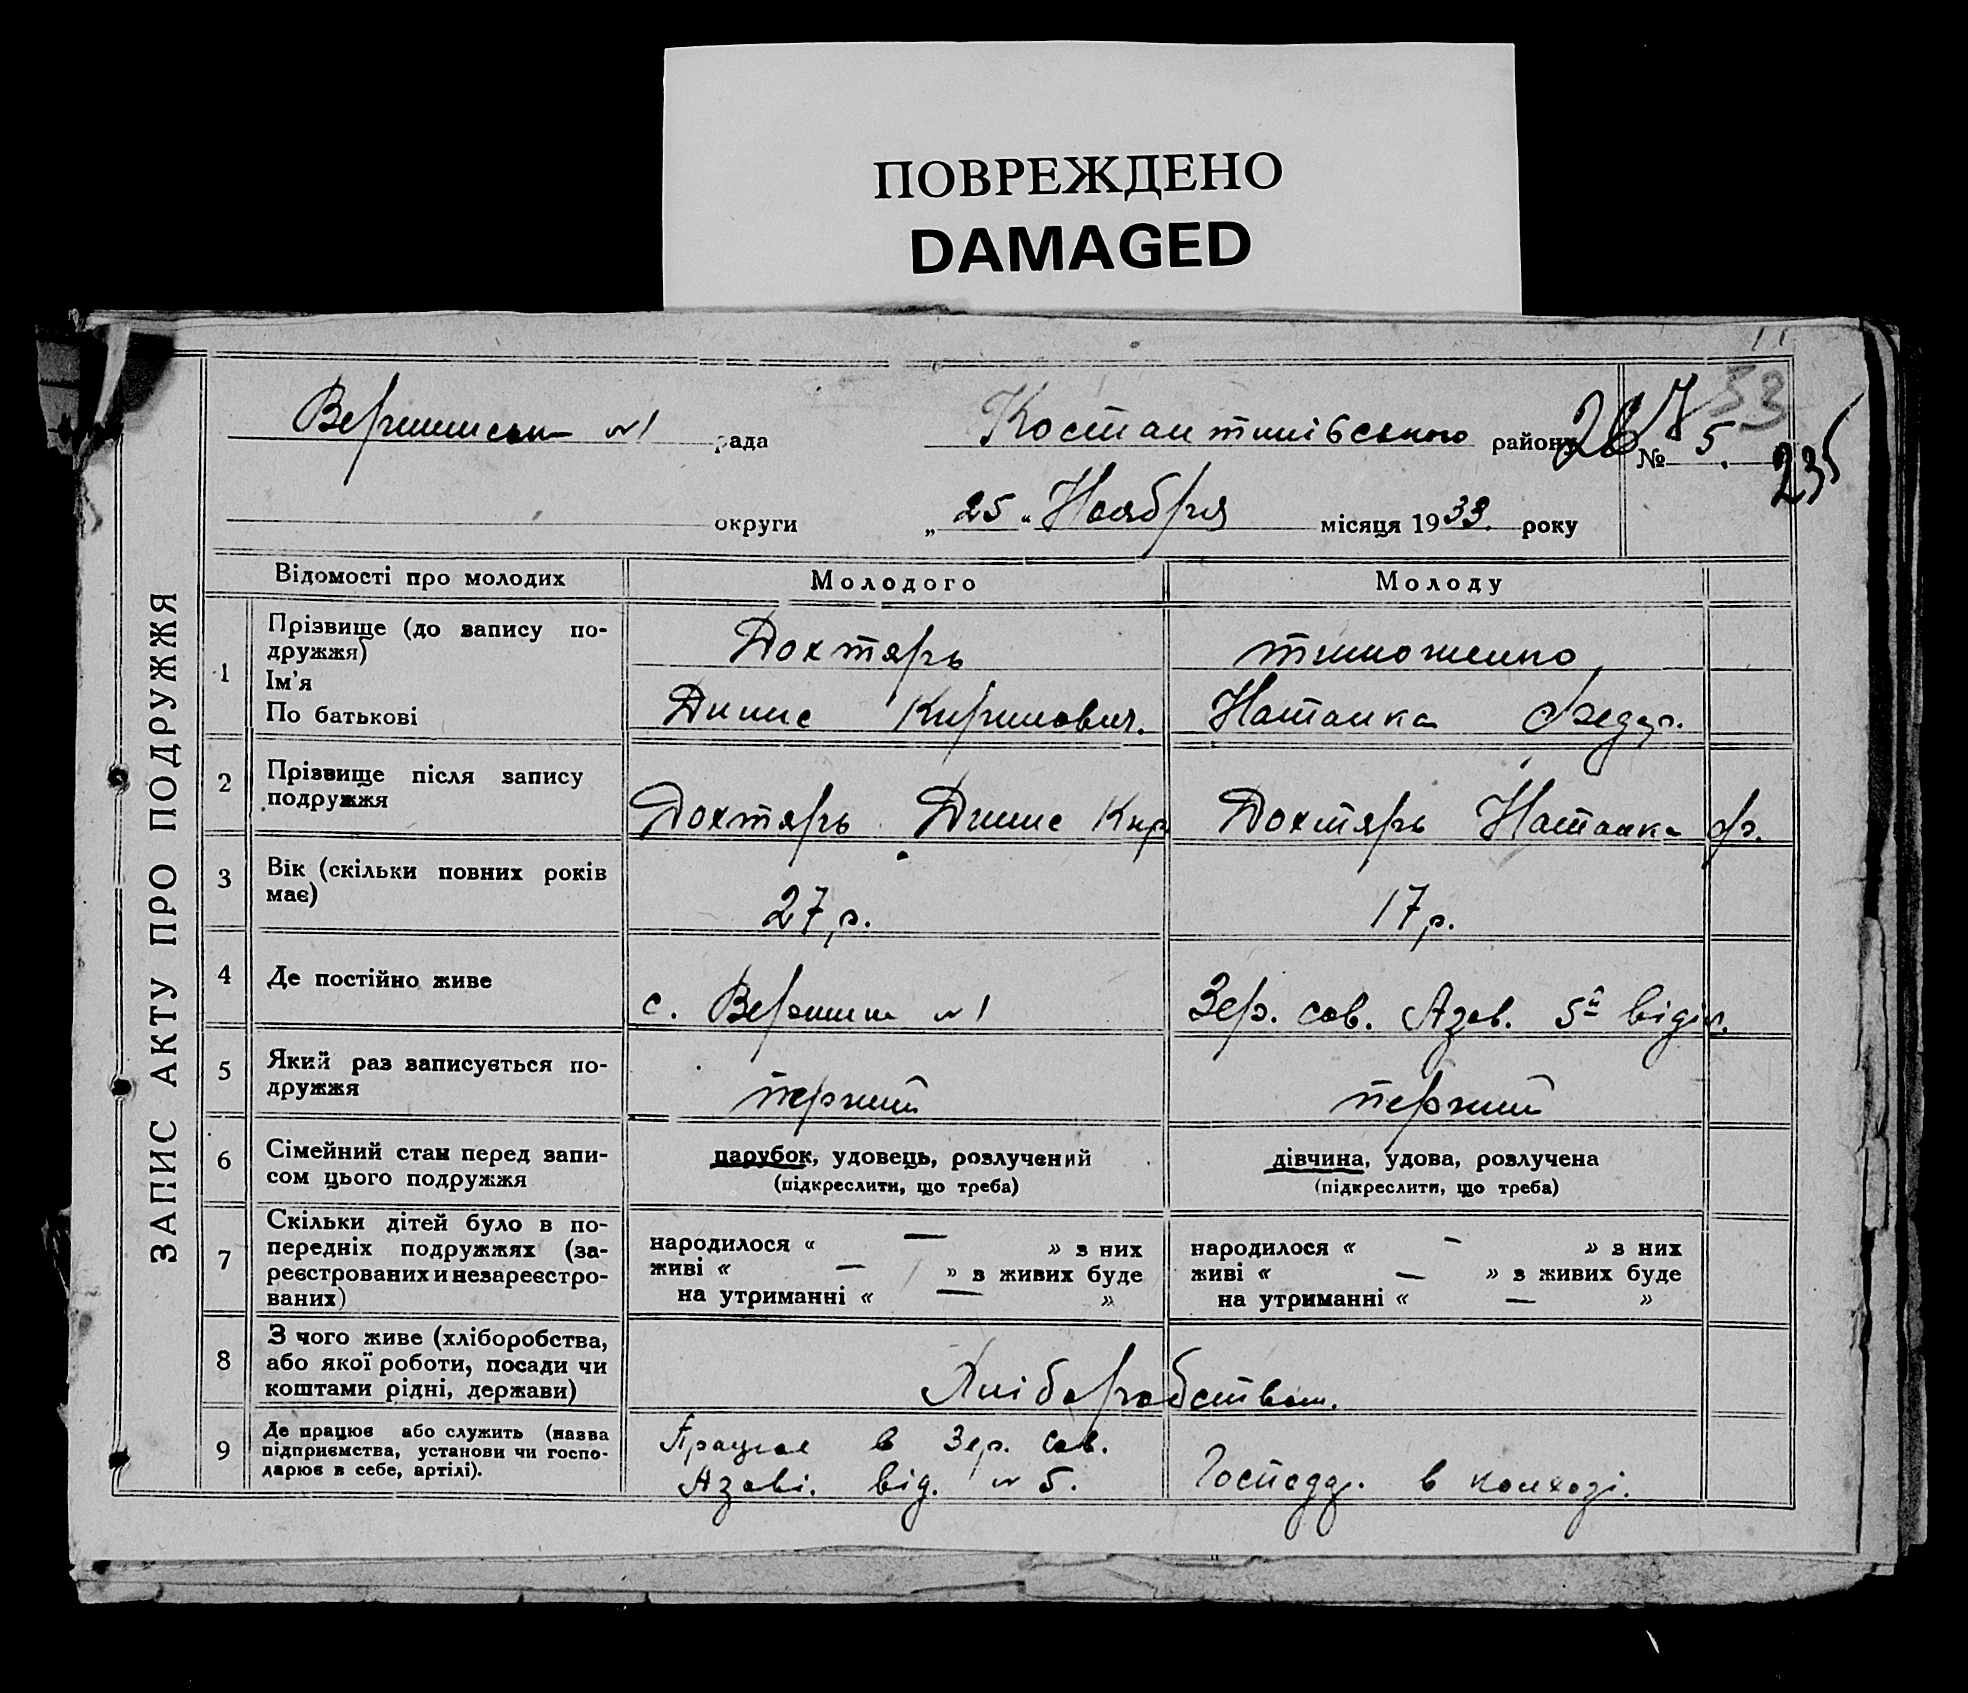 ПОВРЕЖДЕНО
DAMAGED
№1 рада
Костантинівського району
267
№ 5.
33
235
округи
„ 25 “ Ноября місяця 1933. року
ЗАПИС АКТУ ПРО ПОДРУЖЖЯ
Відомості про молодих
Молодого
Молоду
1
Прізвище (до запису по-
дружжя)
Ім'я
По батькові
Дохтярь
Динис Кирилович.
Тимошенко
Наталка Федор.
2
Прізвище після запису
подружжя
Дохтярь Динис Кир
Дохтярь Наталка Ф.
3
Вік (скільки повних років
має)
27 р.
17 р.
4
Де постійно живе
с. Вершини №1
Зер. сов. Азов. 5й відділ.
5
Який раз записується по-
дружжя
перший
перший
6
Сімейний стан перед запи-
сом цього подружжя
парубок, удовець, розлучений
(підкреслити, що треба)
дівчина, удова, розлучена
(підкреслити, що треба)
7
Скільки дітей було в по-
передніх подружжях (за-
реєстрованих и незареєстро-
ваних)
народилося « — » з них
живі « — » з живих буде
на утриманні « — »
народилося « - » з них
живі « — » з живих буде
на утриманні « — »
8
З чого живе (хліборобства,
або якої роботи, посади чи
коштами рідні, держави)
Хліборобством.
9
Де працює або служить (назва
підприємства, установи чи госпо-
дарює в себе, артілі).
Працює в Зер. Сов.
Азові. від. № 5.
Господ. в колхозі.